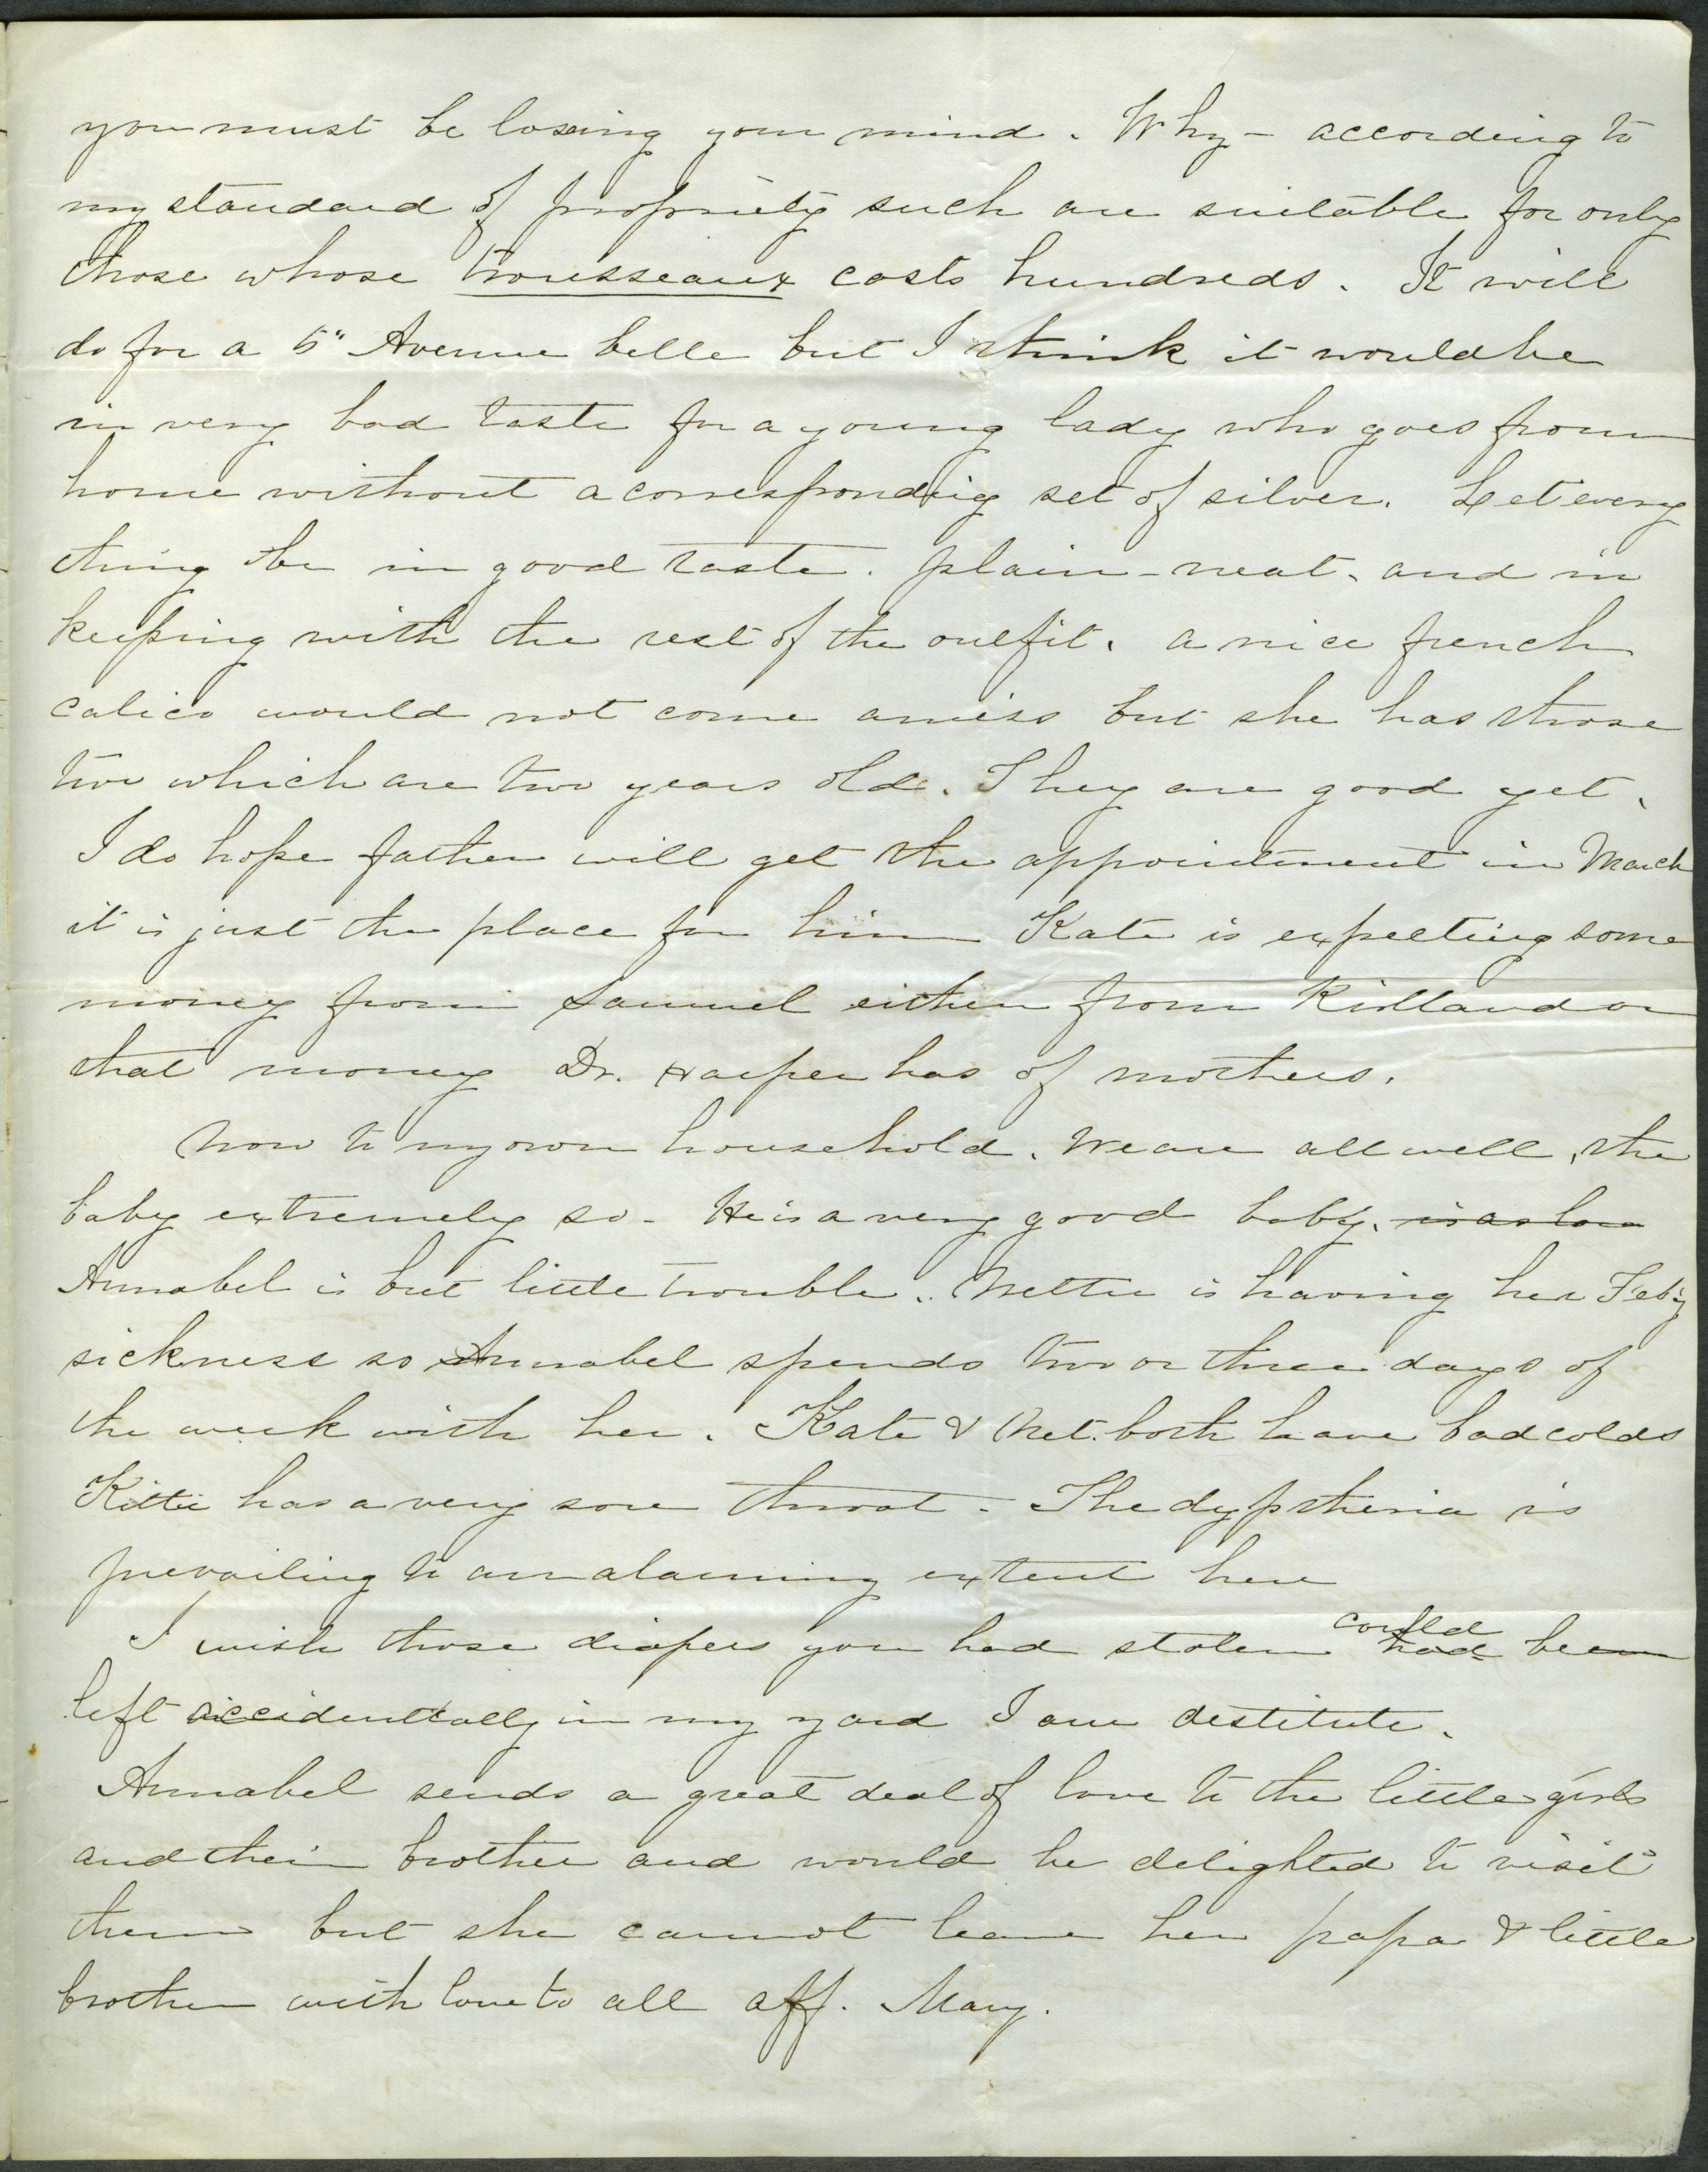 you must be losing your mind. Why - according to
my standard of propriety such are suitable for only
those whose trousseaux costs hundreds. It will
do for a 5" Avenue belle but I think it would be
in very bad taste for a young lady who goes from
home without a corresponding set of silver. Let every
thing be in good taste. plain - neat - and in
keeping with the rest of the outfit. a nice french
calico would not come amiss but she has those
two which are two years old. They are good yet.
I do hope father will get the appointment in March
it is just the place for him Kate is expecting some
money from Samuel either from Kirtland or
that money Dr. Harper has of mothers.
Now to my own household. We are all well, the
baby extremely so - He is a very good baby.
Annabel is but little trouble. Nettie is having her Feb'y
sickness so Annabel spends two or three days of
the week with her. Kate & Net. both have bad colds
Kittie has a very sore throat - The dyptheria is
prevailing to an alarming extent here
I wish those diapers you had stolen could had been
left accidentally in my yard I am destitute.
Annabel sends a great deal of love to the little girls
and their brother and would be delighted to visit
them but she cannot leave her papa & little
brother with love to all aff. Mary.